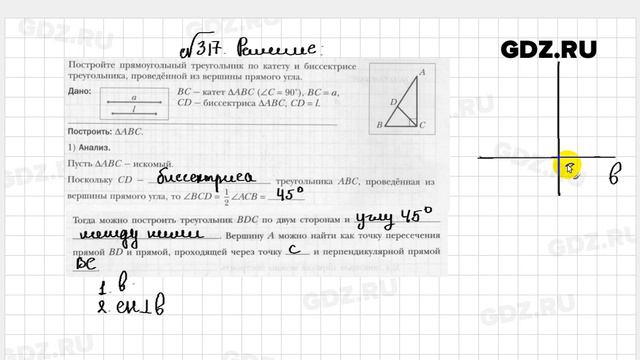 №317. Решение:
GDZ.RU
Постройте прямоугольный треугольник по катету и биссектрисе
треугольника, проведённой из вершины прямого угла.
Дано:
a
l
BC – катет ΔABC (∠C = 90°), BC = a,
CD – биссектриса ΔABC, CD = l.
A
D
B
C
Построить: ΔABC.
1) Анализ.
Пусть ΔABC – искомый.
Поскольку CD – биссектриса треугольника ABC, проведённая из
вершины прямого угла, то ∠BCD = 1/2 ∠ACB = 45°
Тогда можно построить треугольник BDC по двум сторонам и углу 45°
между ними. Вершину A можно найти как точку пересечения
прямой BD и прямой, проходящей через точку C и перпендикулярной прямой
BC
1. b
2. CH⊥b
b